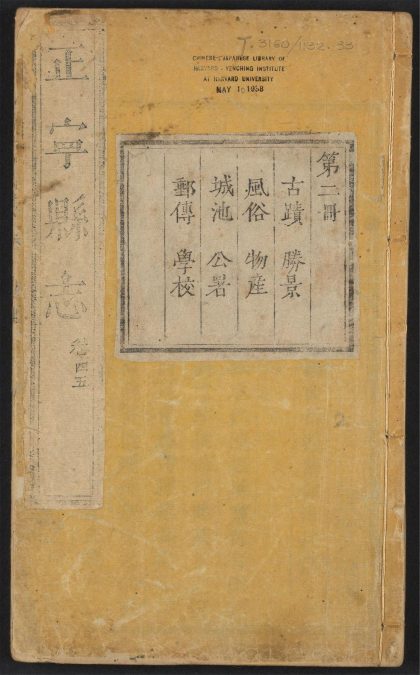 T 3150/1132.33
CHINESE-JAPANESE LIBRARY OF
HARVARD-YENCHING INSTITUTE
AT HARVARD UNIVERSITY
MAY 16 1938
第二冊
古蹟 勝景
風俗 物産
城池 公署
郵傳 學校
正寧縣志
卷四五
2